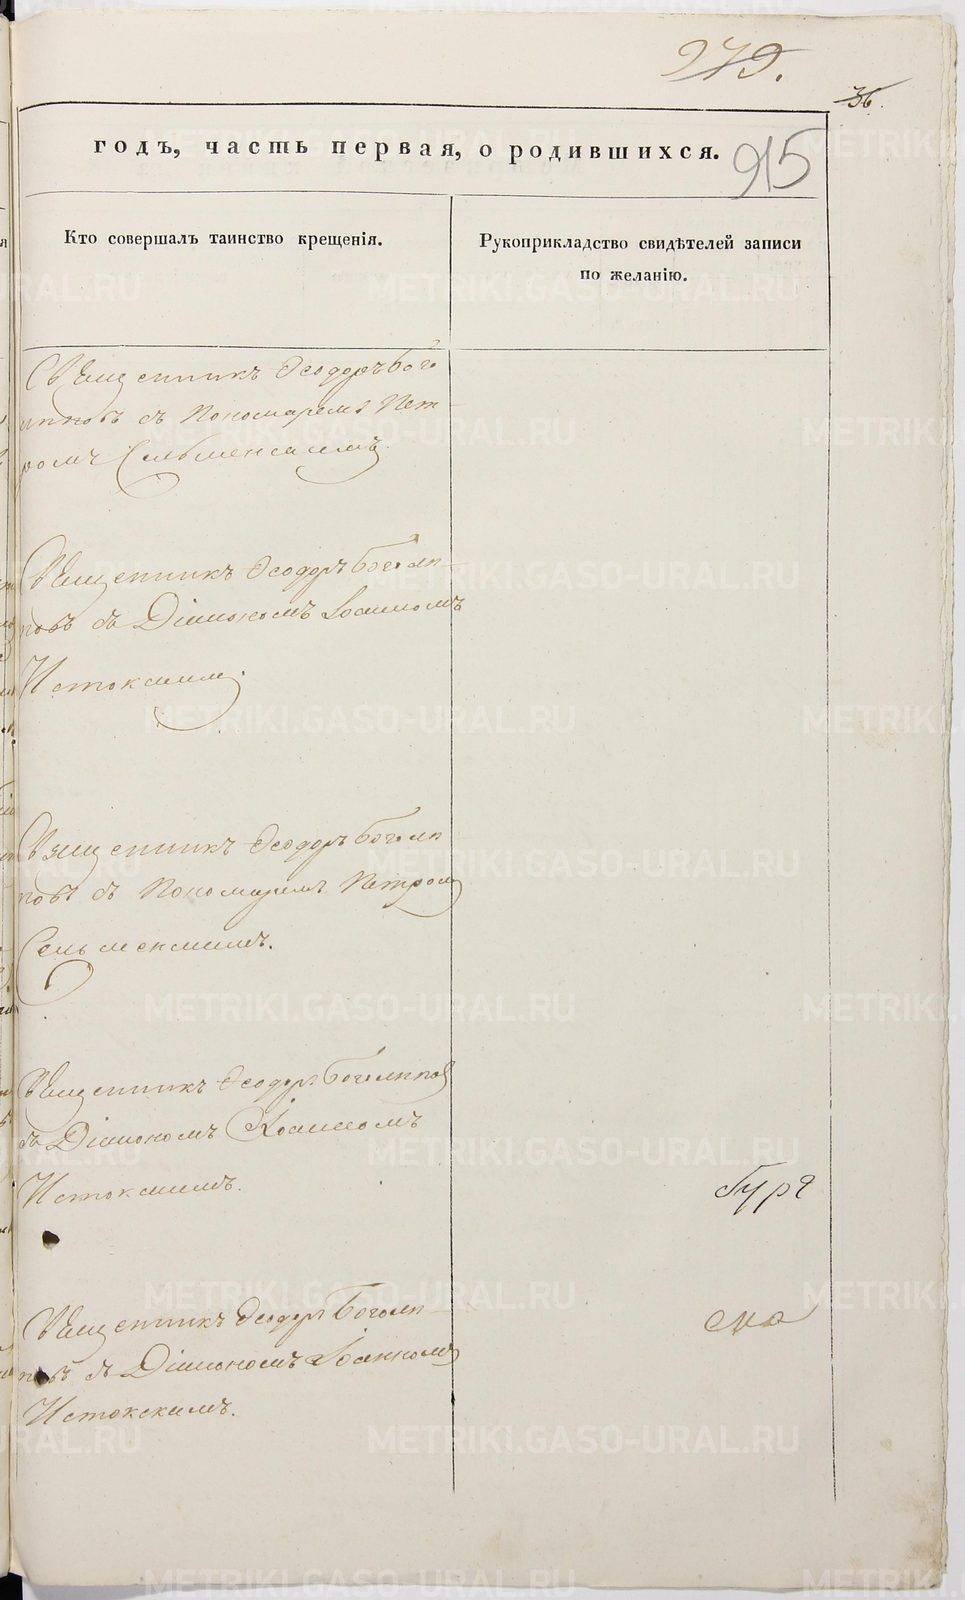 279.
36.
годъ, часть первая, о родившихся.
915
Кто совершалъ таинство крещенія.
Рукоприкладство свидѣтелей записи
по желанію.
Священникъ Ѳеодоръ Бого
липовъ съ Пономаремъ Пет
ромъ Сельменскимъ.
Священникъ Ѳеодоръ Боголи
повъ съ Діакономъ Іоанномъ
Истокскимъ.
Священникъ Ѳеодоръ Боголи
повъ съ Пономаремъ Петромъ
Сельменскимъ.
Священникъ Ѳеодоръ Боголиповъ
съ Діакономъ Іоанномъ
Истокскимъ.
Священникъ Ѳеодоръ Боголи
повъ съ Діакономъ Іоанномъ
Истокскимъ.
METRIKI.GASO-URAL.RU